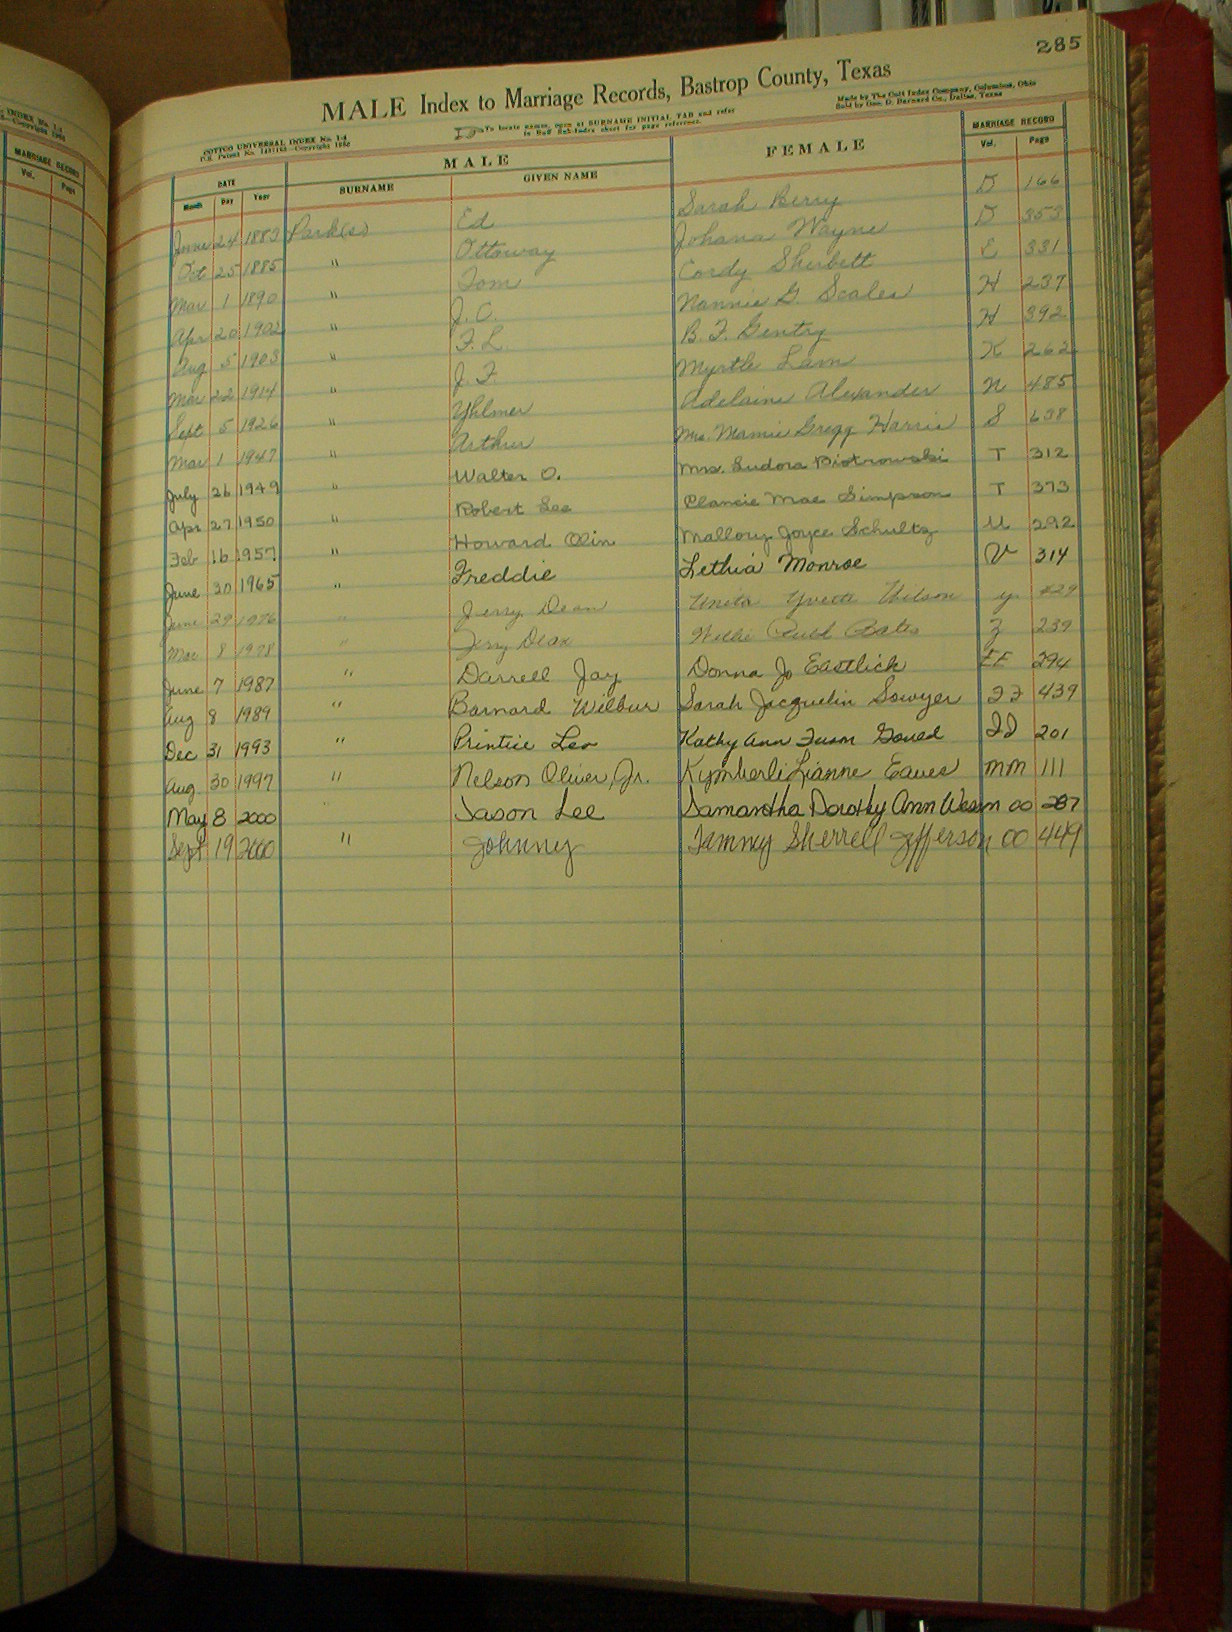 285
MALE Index to Marriage Records, Bastrop County, Texas
COTTCO UNIVERSAL INDEX No. 1-4
To locate names, open at SURNAME INITIAL TAB and refer
to Buff Sub-Index sheet for page reference.
Made by The Cott Index Company, Columbus, Ohio
Sold by Geo. D. Barnard Co., Dallas, Texas
INDEX No. 1-4
MARRIAGE RECORD
Vol. Page
DATE MALE FEMALE MARRIAGE RECORD
Month Day Year SURNAME GIVEN NAME Vol. Page
June 24 1883 Park(s) Ed Sarah Berry D 166
Oct 25 1885 " Ottoway Johana Wayne D 353
Mar 1 1890 " Tom Cordy Sherbett E 331
Apr 20 1902 " J. O. Nannie G. Scales H 237
Aug 5 1903 " F. L. B. F. Gentry H 392
Mar 22 1914 " J. F. Myrtle Lam K 262
Sept 5 1926 " Yhlmer Adelaine Alexander N 485
Mar 1 1947 " Arthur Mrs. Mamie Gregg Harris S 638
July 26 1949 " Walter O. Mrs. Eudora Piotrowski T 312
Apr 27 1950 " Robert Lee Clancie Mae Simpson T 373
Feb 16 1957 " Howard Olin Mallory Joyce Schultz U 292
June 30 1965 " Freddie Lethia Monroe V 314
June 29 1976 " Jerry Dean Uneta Yvette Wilson Y 429
Mar 8 1978 " Jerry Dean Willie Ruth Bates Z 239
June 7 1987 " Darrell Jay Donna Jo Eastlick EE 294
Aug 8 1989 " Barnard Wilbur Sarah Jacquelin Sowyer FF 439
Dec 31 1993 " Printice Leo Kathy Ann Goued 201
Aug. 30 1997 " Nelson Oliver, Jr. Kymberli Lianne Eaves MM 111
May 8 2000 " Jason Lee Samantha Dorothy Ann Wesson OO 287
Sept 19 2000 " Johnny Tammy Sherrell Jefferson OO 449